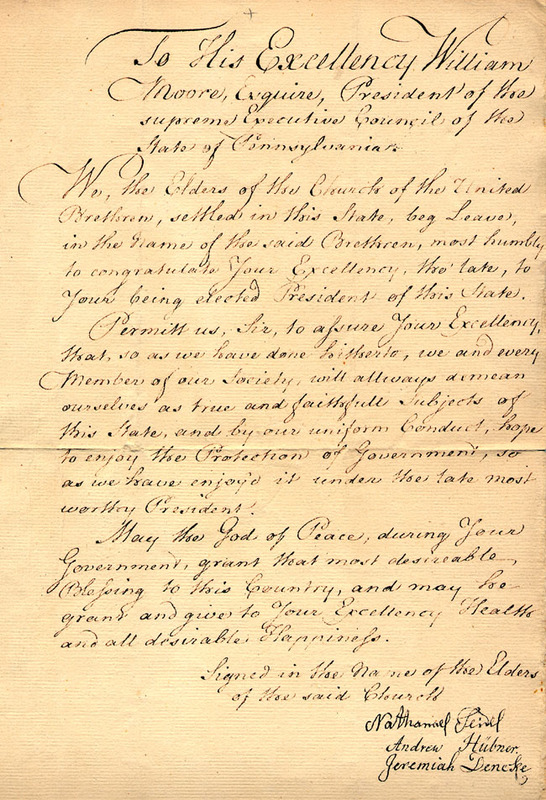 To His Excellency William
Moore, Esquire, President of the
supreme Executive Council of the
State of Pennsylvania.
We, the Elders of the Church of the United
Brethren, settled in this State, beg Leave,
in the Name of the said Brethren, most humbly
to congratulate Your Excellency, tho' late, to
Your being elected President of this State.
Permitt us, Sir, to assure Your Excellency,
that, so as we have done hitherto, we and every
Member of our Society, will allways demean
ourselves as true and faithfull Subjects of
this State, and by our uniform Conduct, hope
to enjoy the Protection of Government, so
as we have enjoy'd it under the late most
worthy President.
May the God of Peace, during Your
Government, grant that most desireable
Blessing to this Country, and may he
grant and give to Your Excellency Health
and all desirable Happiness.
Signed in the Name of the Elders
of the said Church
Nathanael Seidel
Andrew Hübner
Jeremiah Dencke,